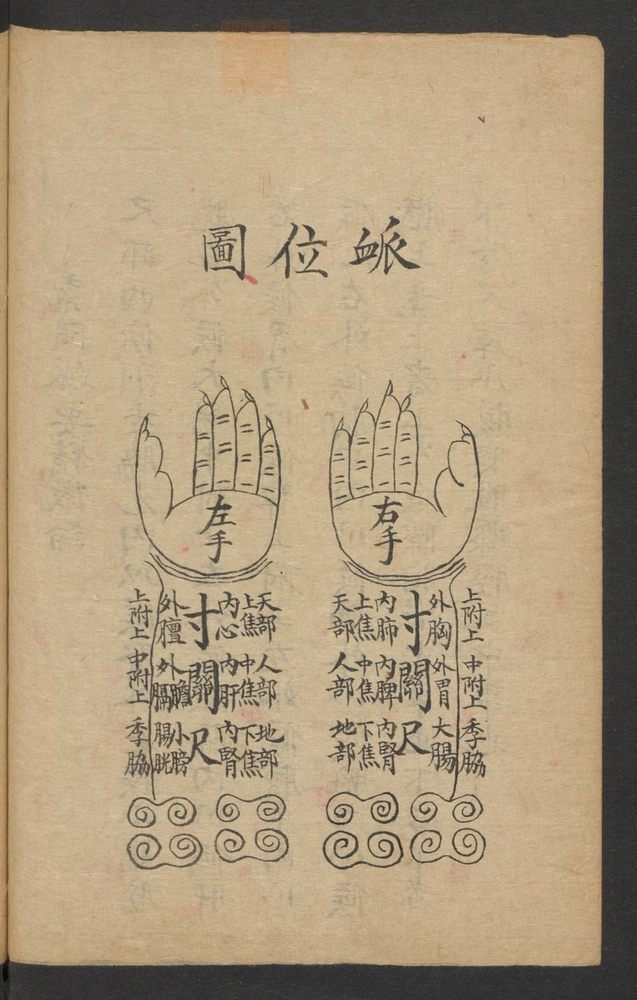 衇位圖
右手
上附上 中附上 季脇
外胸 外胃 大腸
寸關尺
內肺 內脾 內腎
上焦 中焦 下焦
天部 人部 地部
左手
天部 人部 地部
上焦 中焦 下焦
內心 內肝 內腎
寸關尺
外膻 外膽膈 小腸膀胱
上附上 中附上 季脇